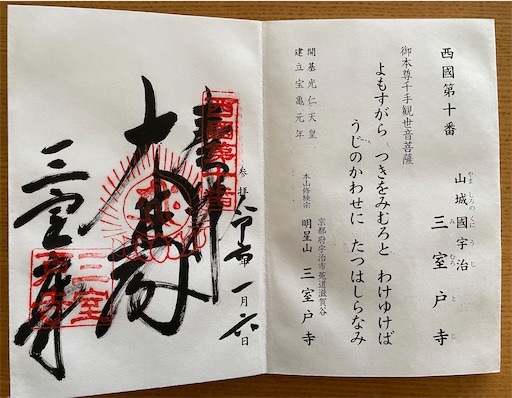 西國第十番
山城國宇治
やましろのくに うじ
三室戸寺
みむろとじ
御本尊千手観世音菩薩
よもすがら つきをみむろと わけゆけば
うじのかわせに たつはしらなみ
開基光仁天皇
建立宝亀元年
京都府宇治市莵道滋賀谷
本山修験宗
明星山 三室戸寺
参拝 年一月六日
西國第十番
三室戸寺
三室